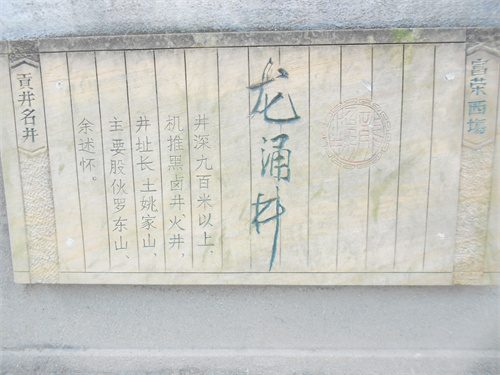 富荣西场
龙涌井
井深九百米以上，
机推黑卤井、火井，
井址长土姚家山，
主要股伙罗东山、
余述怀。
貢井名井